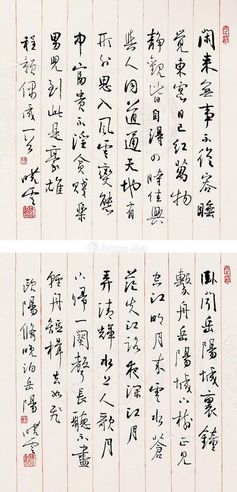 閑來無事不從容睡
覺東窗日已紅萬物
靜觀皆自得四時佳興
與人同道通天地有
形外思入風雲變態
中富貴不淫貧賤樂
男兒到此是豪雄
程顥偶成一首
臥聞岳陽城裏鐘
繫舟岳陽城下樹正見
空江明月來雲水蒼
茫失江路夜深江月
弄清輝水上人歌月
下歸一闋聲長聽不盡
輕舟短楫去如飛
歐陽修晚泊岳陽